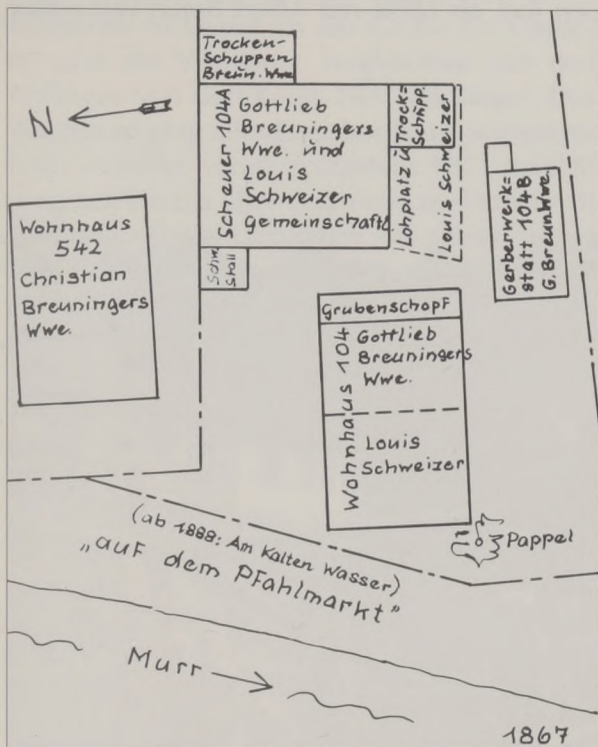 Trocken-
Schuppen
Breun. Wwe
N
Scheuer 104A
Gottlieb
Breuningers
Wwe. und
Louis
Schweizer
gemeinschaftl.
Trock=
Schupp.
Lohplatz u
Louis Schweizer
Gerberwerk=
statt 104B
G. Breun. Wwe.
Wohnhaus
542
Christian
Breuningers
Wwe.
Schw.
Stall
Grubenschopf
Wohnhaus 104
Gottlieb
Breuningers
Wwe.
Louis
Schweizer
Pappel
(ab 1888: Am Kalten Wasser)
„auf dem Pfahlmarkt"
Murr
1867